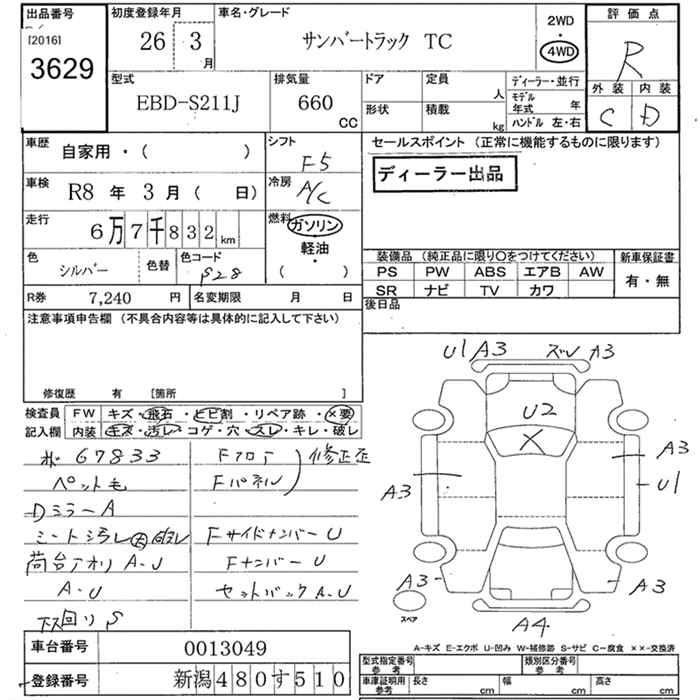 出品番号 初度登録年月 車名・グレード 2WD 評価点
[2016] 26 3月 サンバートラック TC ・ R
3629 4WD 外装 内装
C D
型式 排気量 ドア 定員 人 ディーラー・並行
EBD-S211J 660 CC 形状 積載 kg モデル年式 年
ハンドル 左・右
車歴 自家用・( ) シフト F5
車検 R8年 3月( 日) 冷房 A/C
走行 6万7千832km 燃料 ガソリン・軽油・( )
色 シルバー 色替 色コード S28
R券 7,240円 名変期限 月 日
セールスポイント (正常に機能するものに限ります)
ディーラー出品
装備品 (純正品に限り○をつけてください) 新車保証書
PS PW ABS エアB AW 有・無
SR ナビ TV カワ
後日品
注意事項申告欄 (不具合内容等は具体的に記入して下さい)
修復歴 有 [箇所 ]
検査員 FW キズ・飛石・ヒビ割・リペア跡・×要
記入欄 内装 キズ・汚レ・コゲ・穴・スレ・キレ・破レ
67833 Fフロア
ペット毛 Fパネル 修正歪
DミラーA
シート汚レ大破レ FサイドメンバーU
荷台アオリA・U FメンバーU
A・U セットバックA・U
下回りS
U1 A3 ズレ A3
U2
X
A3 A3
U1
A3 A3
スペア
A4
A-キズ E-エクボ U-凹み W-補修跡 S-サビ C-腐食 ××-交換済
車台番号 0013049
登録番号 新潟480す510
型式指定番号 参考 類別区分番号 参考
車庫証明用 参考 長さ cm 幅 cm 高さ cm